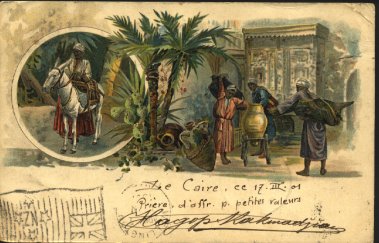 Le Caire, ce 17. III. 01
Prière, d'affr. p. petites valeurs
Hagop Makmadjian